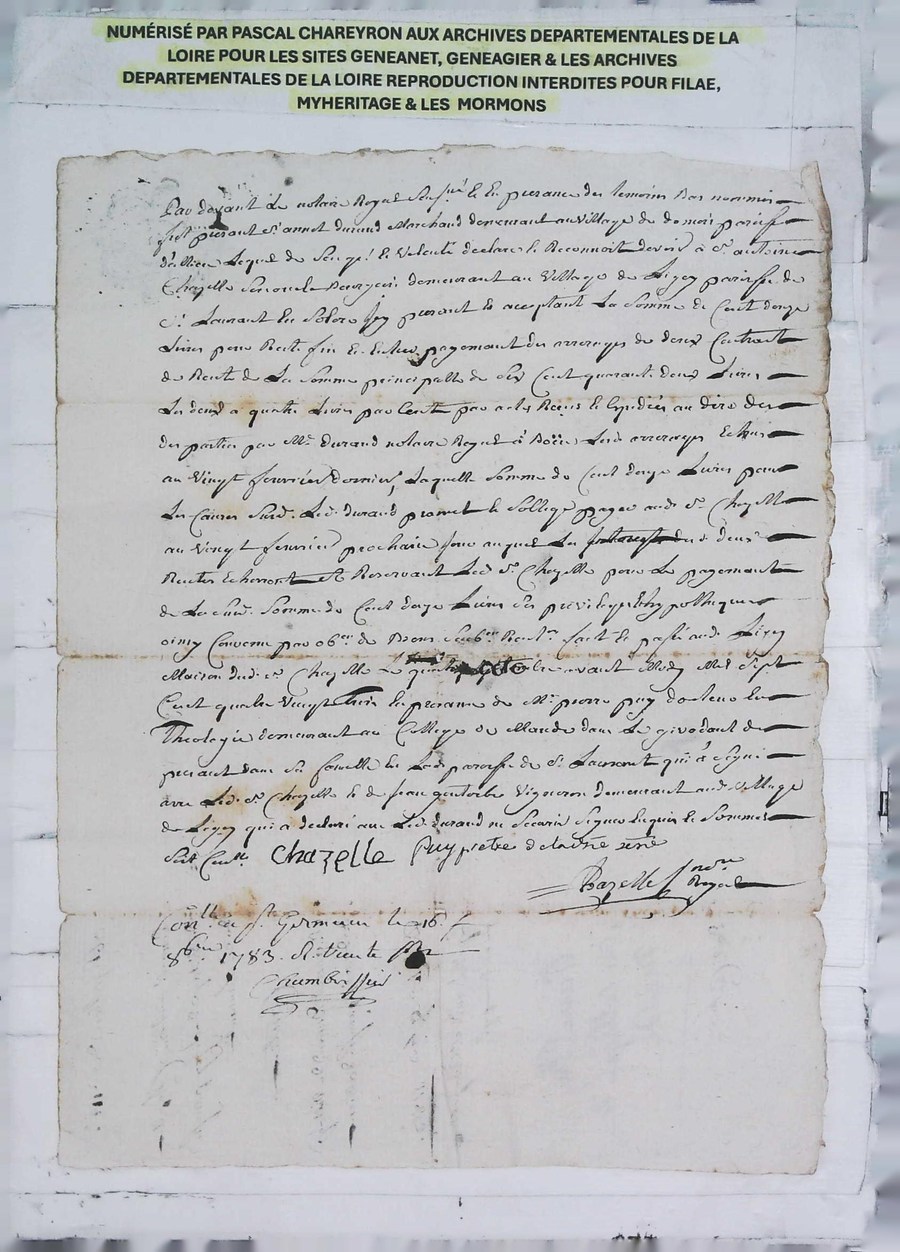 NUMÉRISÉ PAR PASCAL CHAREYRON AUX ARCHIVES DEPARTEMENTALES DE LA
LOIRE POUR LES SITES GENEANET, GENEAGIER & LES ARCHIVES
DEPARTEMENTALES DE LA LOIRE REPRODUCTION INTERDITES POUR FILAE,
MYHERITAGE & LES MORMONS
Par devant Le notaire Royal et En presance des temoins Bas nommés
fut presant Sr annet durand Marchand demeurant au village de paroisse
Lequel de Son gré et Volonté declare et Reconnoit devoir à Sr antoine
Chazelle Bourgeois demeurant au Village de Ligey paroisse de
St Laurant En Solore Icy presant et aceptant La Somme de Cent douze
Livres pour Reste fin et Entier payemant des arrerages de deux Contrats
de Rente de La Somme principalle de Six Cent quarante deux Livres
Les deux a quatre Livres par Cent par actes Recus et Expediés au dire des
des parties par Me durand notaire Royal à Boën Lesd. arrerages Echus
au Vingt fevrier dernier, Laquelle Somme de Cent douze Livres pour
Les Causes Susd. Led. durand promet et Soblige payer aud. Sr Chazelle
au Vingt fevrier prochain jour auquel Les desd. deux
Rentes Echerront Se Reservant Led. Sr Chazelle pour Le payemant
de La Susd. Somme de Cent douze Livres Ses privileges et hypotheques
ainsy Convenu par obon de Biens fait et passé aud. Ligey
Maison dud. Sr Chazelle Le avant Midy Mil Sept
Cent quatre Vingt trois En presance de Me pierre puy docteur En
Theologie demeurant au College de Mande dans Le givodant de
presant dans Sa famille En Lad. paroisse de St Laurant qui a Signé
avec Led. Sr Chazelle et de Jean Vigneron demeurant aud. Village
de Ligey qui a declaré avec Led. durand ne Scavoir Signer Enquis et Sommés
Chazelle Puy prêtre
Chazelle nore Royal
Conllé à St Germain le 16
8bre 1783. R. trente